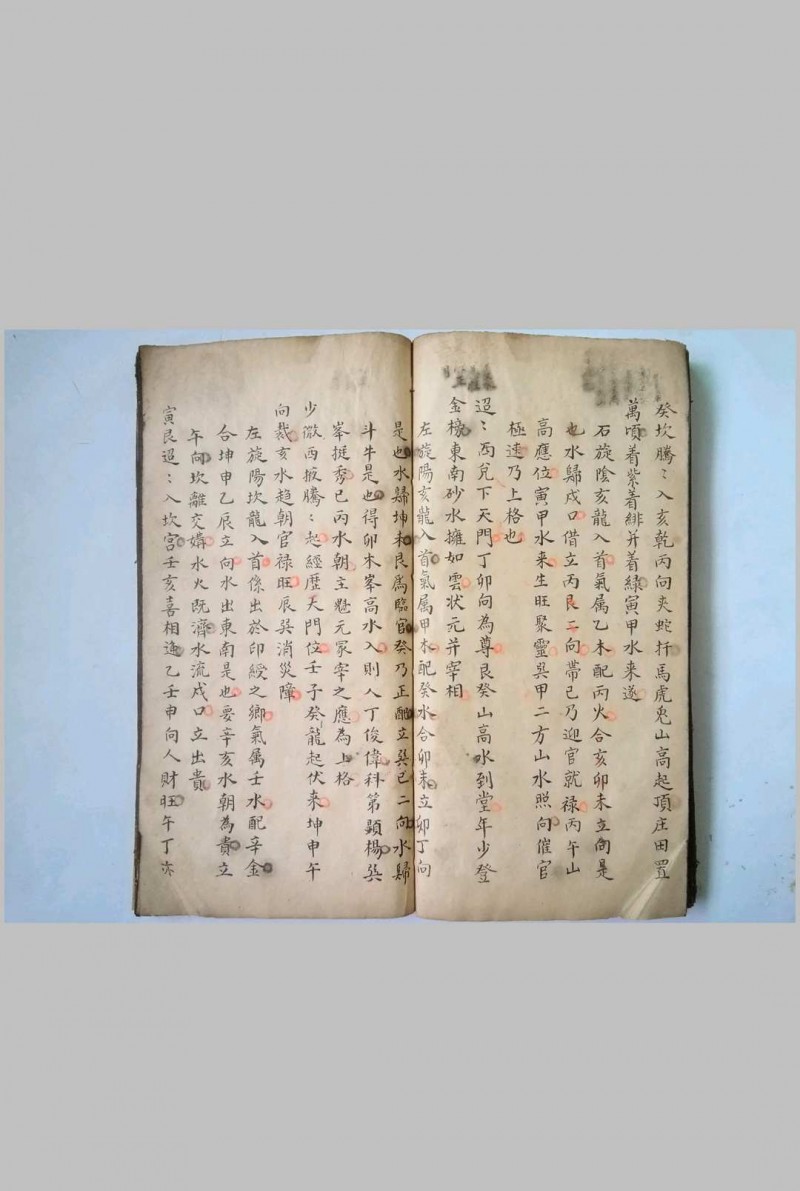 癸坎騰〻入亥乾丙向夾蛇扦馬虎兎山高起頂庄田置
萬頃着紫着緋并着緑寅甲水来遂
石旋陰亥龍入首氣属乙木配丙火合亥卯未立向是
也水歸戍口借立丙艮二向帶已乃迎官就禄丙午山
高應位寅甲水来生旺聚靈巽甲二方山水照向催官
極速乃上格也
迢〻西兌下天門丁卯向為尊艮癸山高水到堂年少登
金榜東南砂水擁如雲状元并宰相
左旋陽亥龍入首氣属甲木配癸水合卯未立卯丁向
是也水歸坤未艮為臨官癸乃正配立巽已二向水歸
斗牛是也得卯木峯高水入則人丁俊偉科第顯楊巽
峯挺秀已丙水朝主魁元冢宰之應為上格
少微西掖騰〻起經歷天門位壬子癸龍起伏来坤申午
向裁亥水趋朝官禄旺辰巽消災障
左旋陽坎龍入首係出於印綬之鄉氣属壬水配辛金
合坤申乙辰立向水出東南是也要辛亥水朝為貴立
午向坎離交媾水火既濟水流戍口立出貴
寅艮迢〻入坎宮壬亥喜相逢乙壬申向人财旺午丁亦